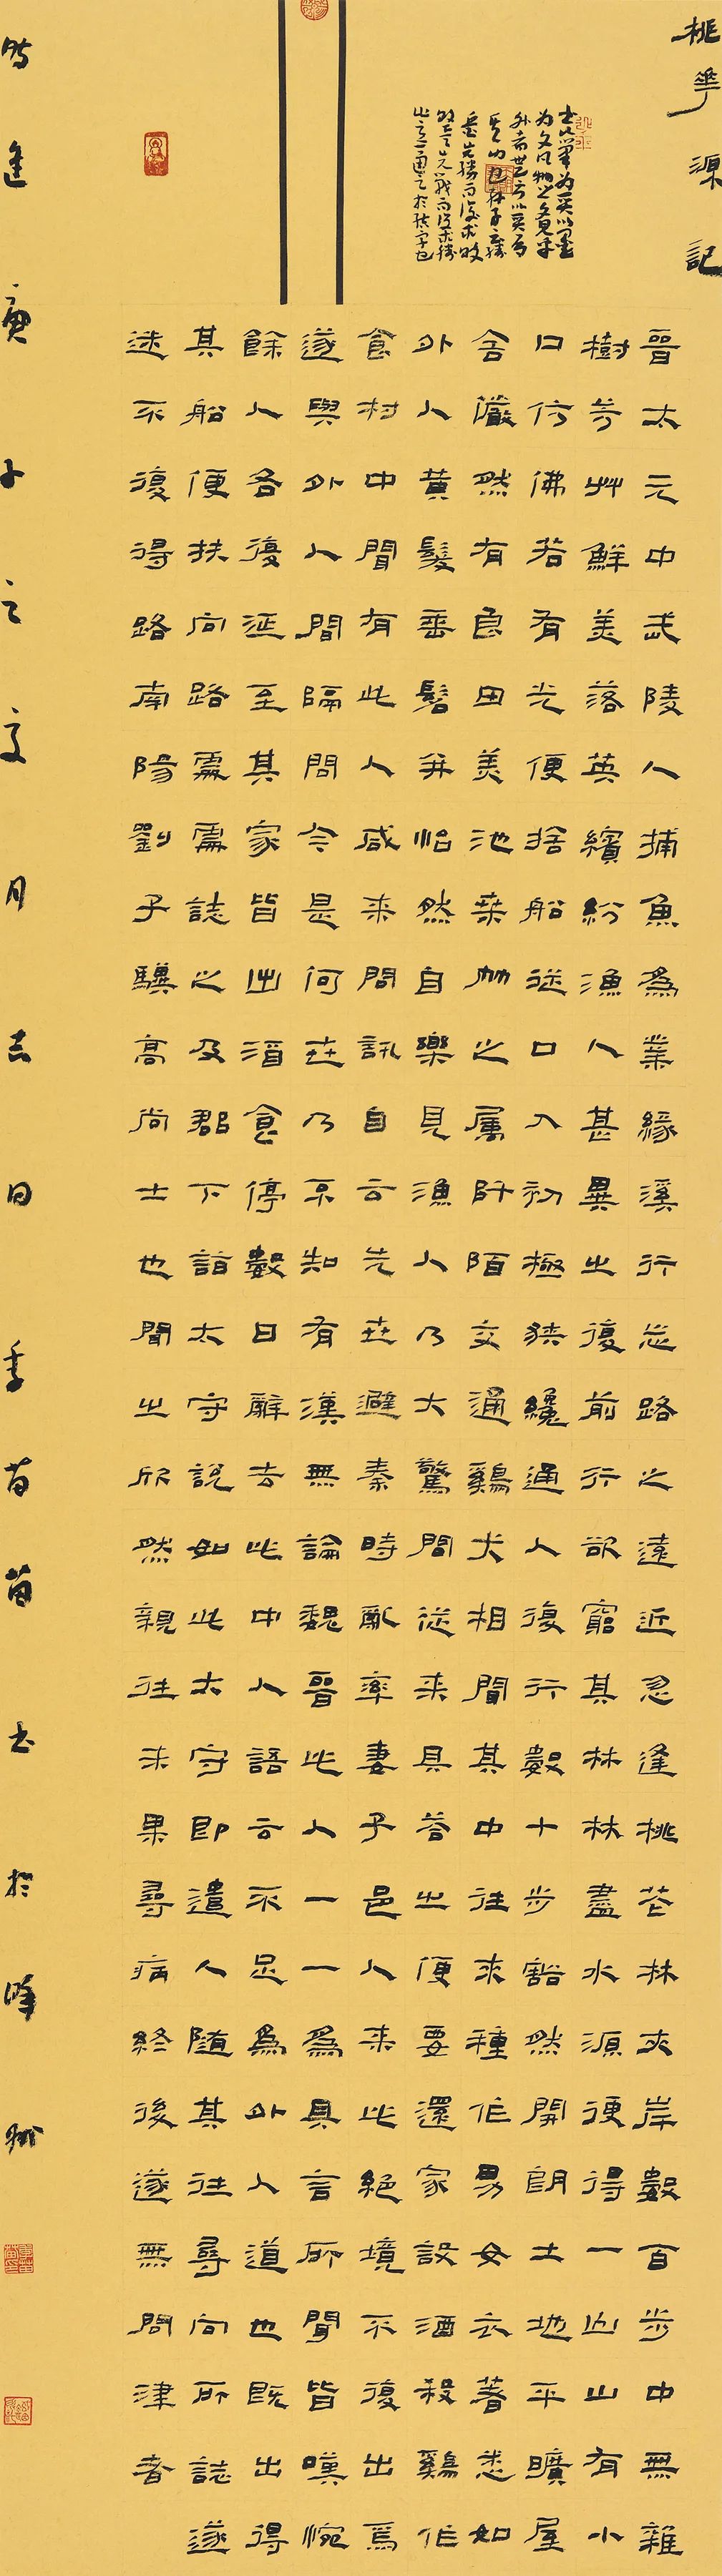 桃華源記
晉太元中武陵人捕魚為業緣溪行忘路之遠近忽逢桃芲林夾岸數百步中無雜
樹芳艸鮮美落英繽紛漁人甚異之復前行欲窮其林林盡水源便得一山山有小
口彷佛若有光便捨船從口入初極狹纔通人復行數十步豁然開朗土地平曠屋
舍儼然有良田美池桒竹之属阡陌交通鷄犬相聞其中往来種作男女衣著悉如
外人黄髮垂髫并怡然自樂見漁人乃大驚問從来具答之便要還家設酒殺鷄作
食村中聞有此人咸来問訊自云先世避秦時亂率妻子邑人来此絕境不復出焉
遂與外人間隔問今是何世乃不知有漢無論魏晉此人一一為具言所聞皆嘆惋
餘人各復延至其家皆出酒食停數日辭去此中人語云不足為外人道也既出得
其船便扶向路處處誌之及郡下詣太守說如此太守即遣人隨其往尋向所誌遂
迷不復得路南陽劉子驥高尚士也聞之欣然親往未果尋病終後遂無問津者
時逢庚子之夏月吉日季苗苗書於